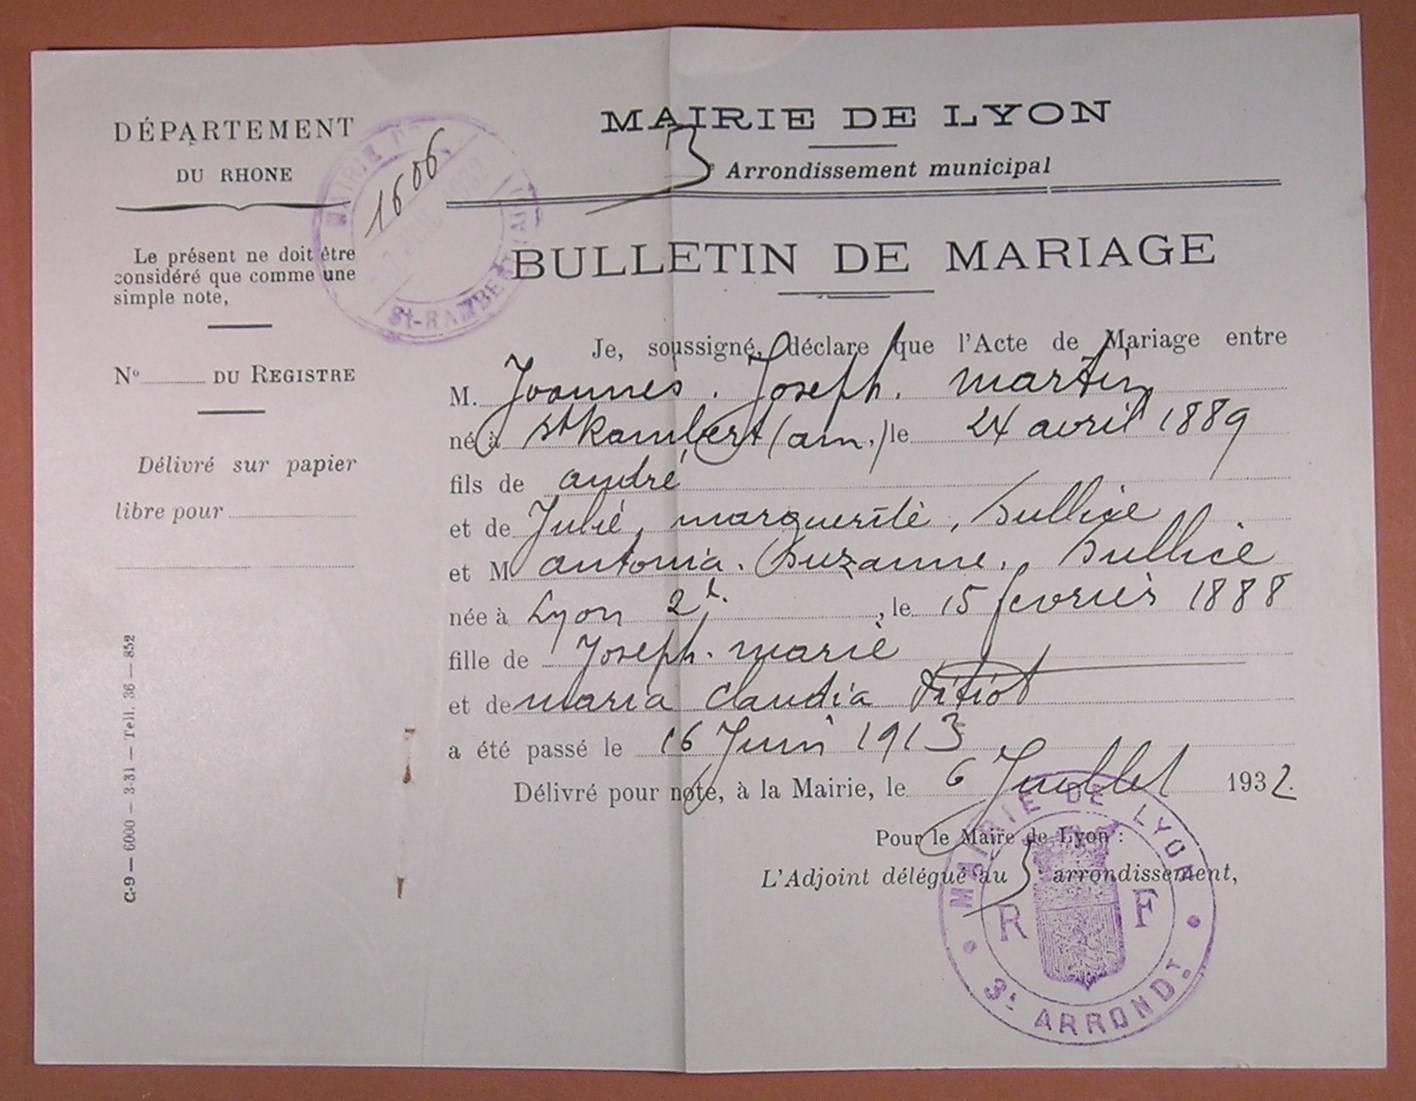 DÉPARTEMENT
DU RHONE
Le présent ne doit être
considéré que comme une
simple note,
N° DU REGISTRE
Délivré sur papier
libre pour
C-9 — 6000 — 3-31 — Tell. 36 — 852
1606
MAIRIE
St-RAMBERT (AIN)
MAIRIE DE LYON
3e Arrondissement municipal
BULLETIN DE MARIAGE
Je, soussigné, déclare que l'Acte de Mariage entre
M. Joannes. Joseph. Martin
né à St Rambert (ain.) le 24 avril 1889
fils de andré
et de Julie, marguerite, Sullice
et M antonia. Suzanne. Sullice
née à Lyon 2e. , le 15 fevrier 1888
fille de Joseph. marie
et de maria Claudia
a été passé le 16 Juin 1913
Délivré pour note, à la Mairie, le 6 Juillet 1932.
Pour le Maire de Lyon :
L'Adjoint délégué au 3e arrondissement,
MAIRIE DE LYON
R F
3e ARRONDt